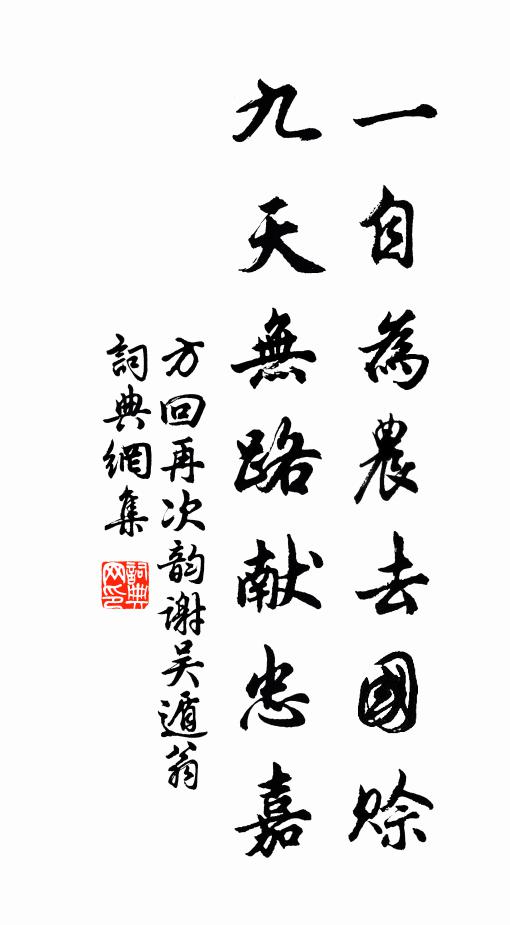 一自為農去國賒
九天無路献忠嘉
方回再次韵谢吴遁翁
詞典網集
詞典网印